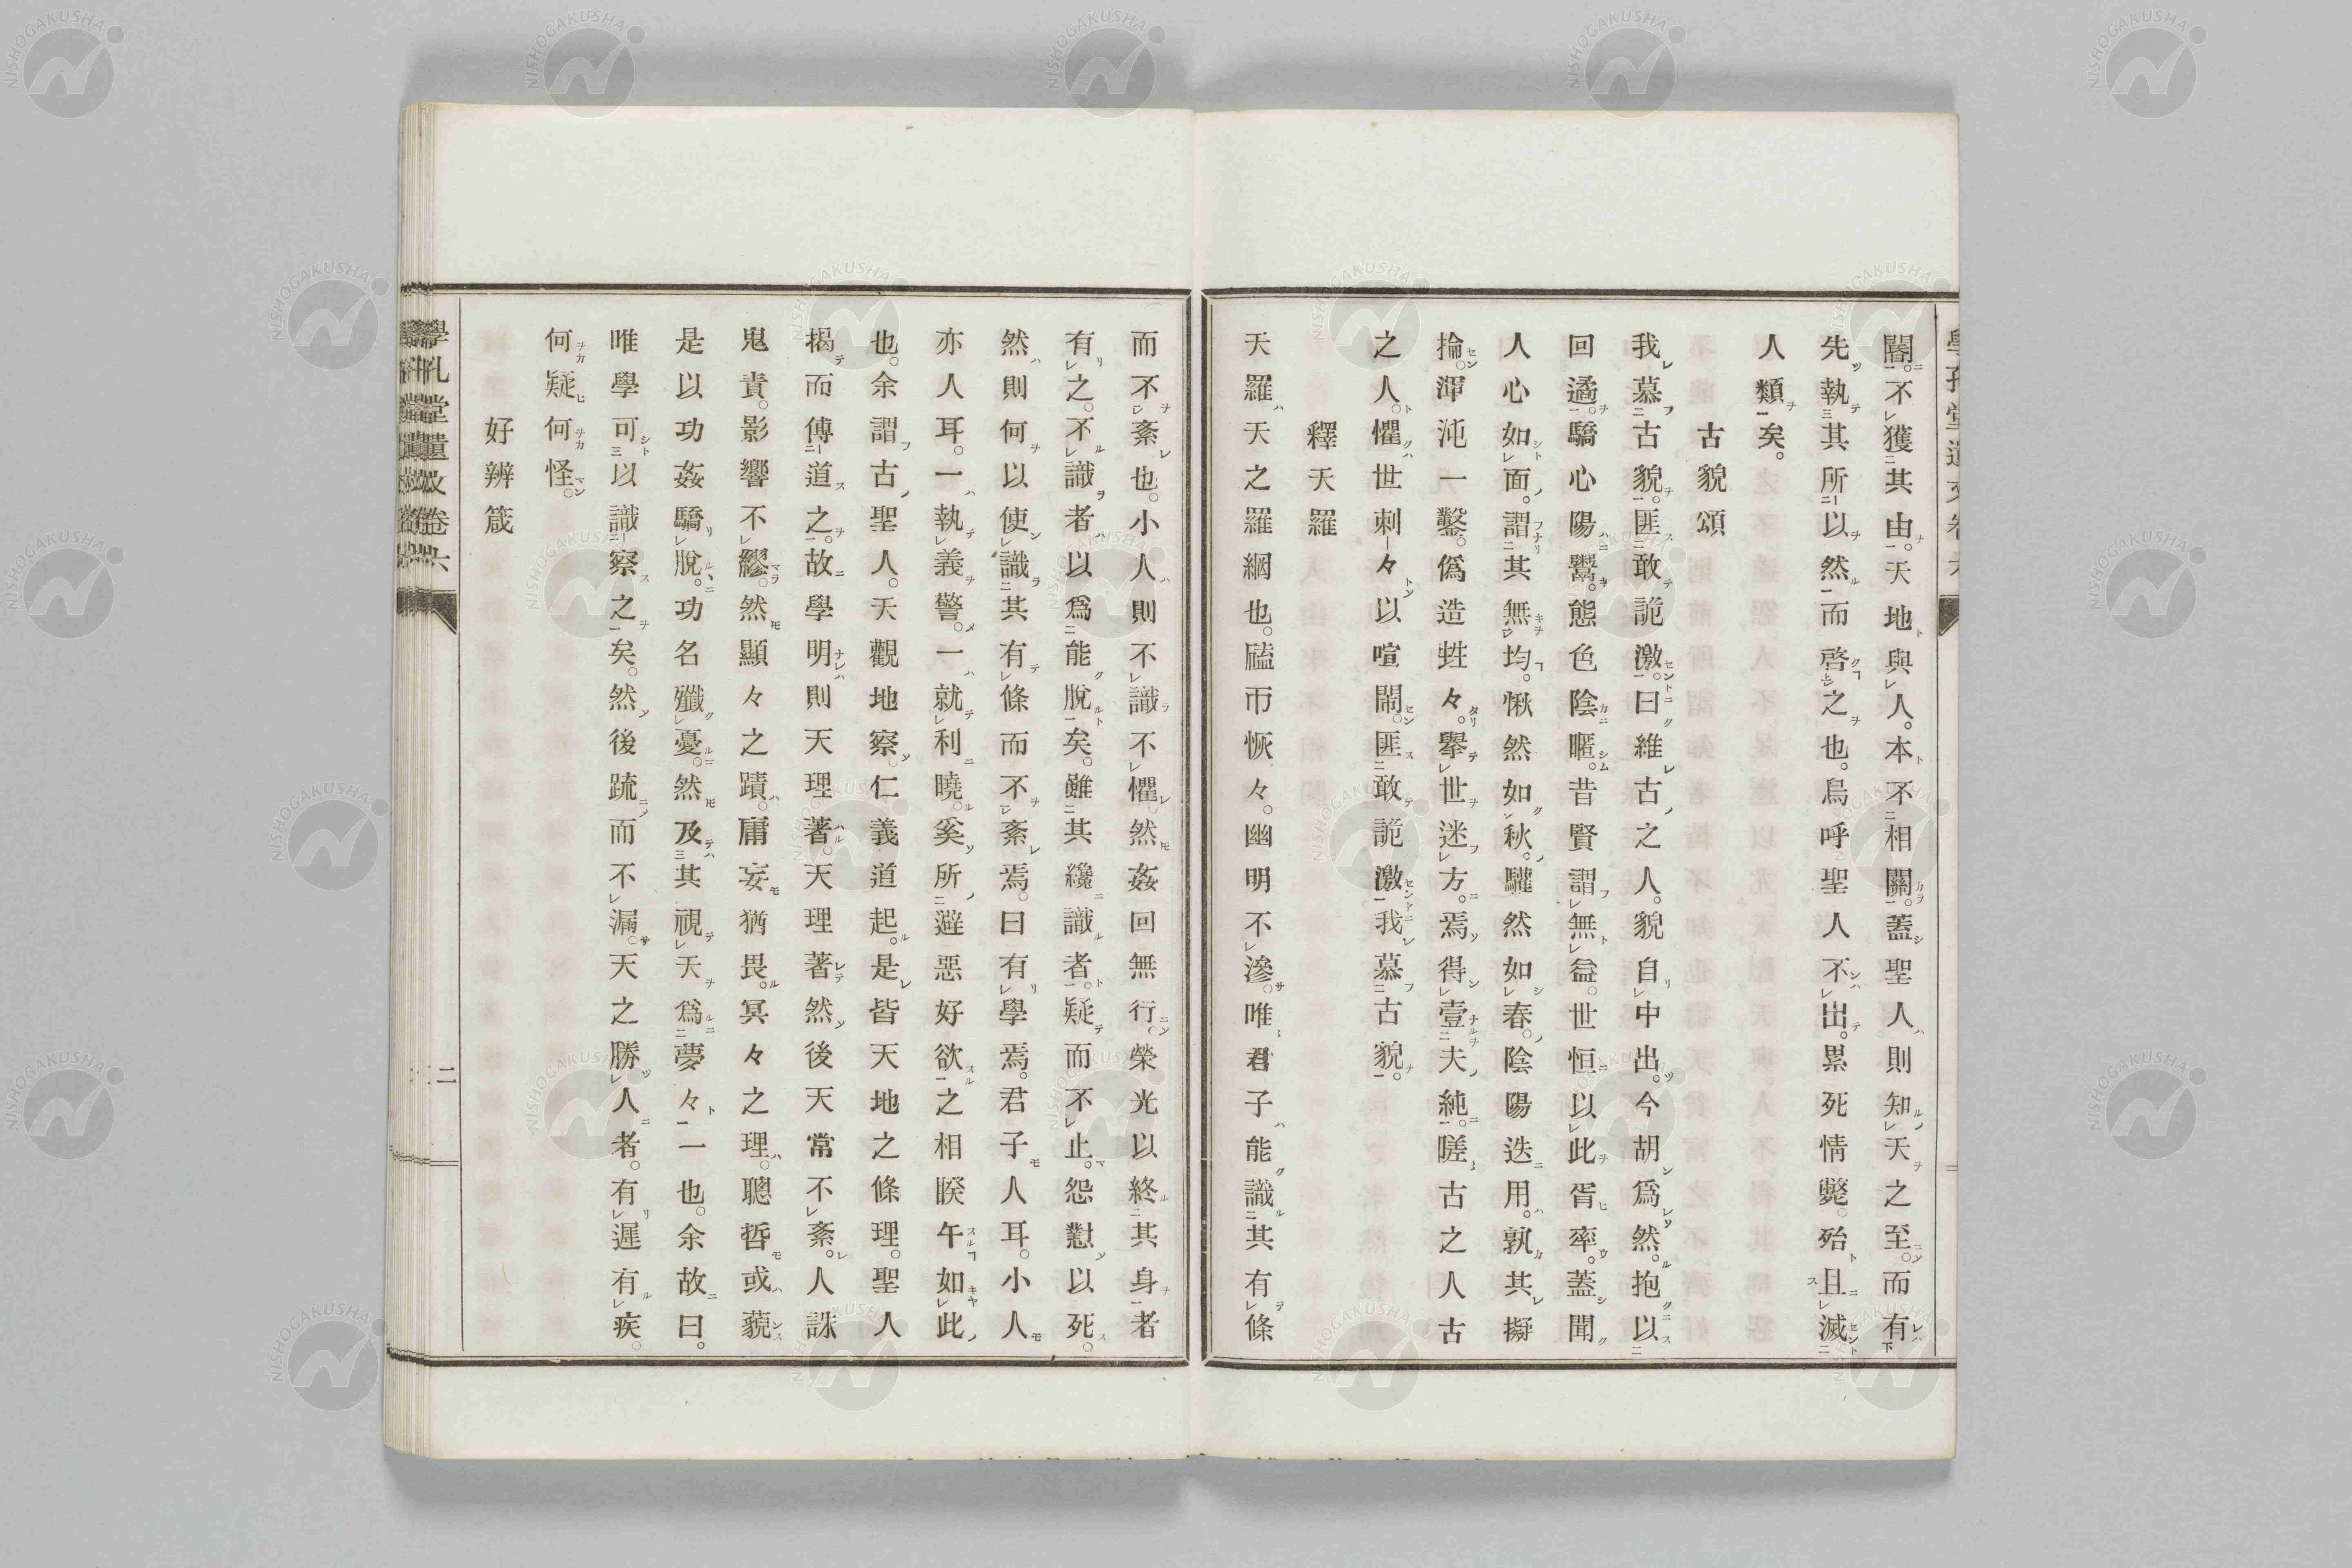 闇。不獲其由。天地與人。本不相關。蓋聖人則知天之至。而有
先執其所以然而啓之也。烏呼聖人不出。累死情斃。殆且滅
人類矣。
古貌頌
我慕古貌。匪敢詭激。曰維古之人。貌自中出。今胡爲然。抱以
回遹。驕心陽鬻。態色陰暱。昔賢謂無益。世恒以此胥率。蓋聞
人心如面。謂其無均。愀然如秋。驩然如春。陰陽迭用。孰其擬
掄。渾沌一鑿。僞造甡々。擧世迷方。焉得壹夫純。嗟古之人古
之人。懼世刺々以喧鬧。匪敢詭激我慕古貌。
釋天羅
天羅天之羅綱也。盍帀恢々。幽明不滲。唯君子能識其有條
而不紊也。小人則不識不懼。然姦回無行。榮光以終其身者
有之。不識者以爲能脫矣。雖其纔識者。疑而不止。怨懟以死。
然則何以使識其有條而不紊焉。曰有學焉。君子人耳。小人
亦人耳。一執義警。一就利曉。奚所避惡好欲之相睽午如此
也。余謂古聖人。天觀地察。仁義道起。是皆天地之條理。聖人
揭而傳道之。故學明則天理著。天理著然後天常不紊。人誅
鬼責。影響不繆。然顯々之蹟。庸妄猶畏。冥々之理。聰哲或藐
是以功姦驕脫。功名殲憂。然及其視天爲夢々一也。余故曰。
唯學可以識察之矣。然後疏而不漏。天之勝人者。有遲有疾。
何疑何怪。
好辨箴
學孔堂遺文卷六
二
NISHOGAKUSHA